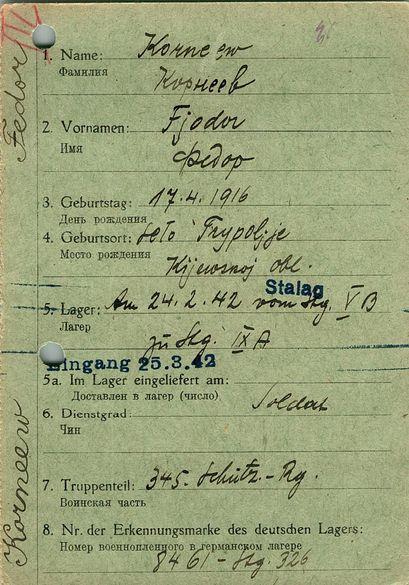 Fedor
Korneew
1. Name: Korneew
Фамилия Корнеев
2. Vornamen: Fjodor
Имя Федор
3. Geburtstag: 17.4.1916
День рождения
4. Geburtsort: selo Trypolje
Место рождения Kijewskoj obl.
Stalag
5. Lager: Am 24.2.42 vom Stg. V B
Лагер zu Stg. IX A
Eingang 25.3.42
5a. Im Lager eingeliefert am:
Доставлен в лагер (число)
Soldat
6. Dienstgrad:
Чин
7. Truppenteil: 345. Schütz.-Rg.
Воинская часть
8. Nr. der Erkennungsmarke des deutschen Lagers:
Номер военнопленного в германском лагере
8461 - Stg. 326